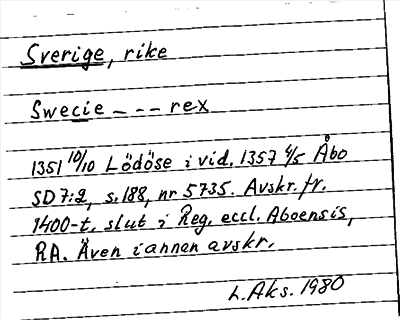 Sverige, rike
Swecie - - - rex
1351 10/10 Lödöse i vid. 1357 4/5 Åbo
SD 7:2, s. 188, nr 5735. Avskr. fr.
1400-t. slut i Reg. eccl. Aboensis,
RA. Även i annan avskr.
L. Aks. 1980